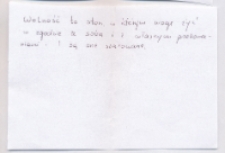 Wolność to stan w którym mogę żyć
w zgodzie z sobą i z własnymi przekona-
niami i są one szanowane.